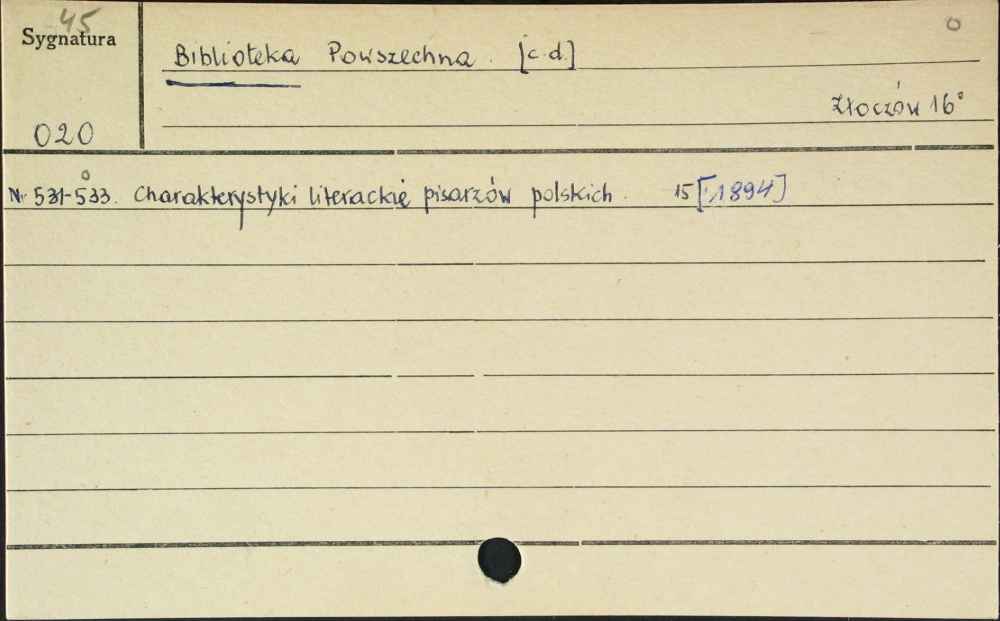 45
Sygnatura
020
Biblioteka Powszechna. [c.d.]
Złoczów 16°
Nr 531-533. Charakterystyki literackie pisarzów polskich. 15 [1894]